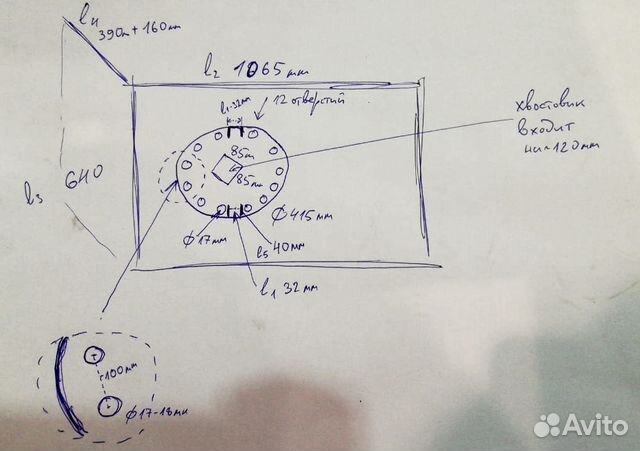 l4
390мм + 160мм
l2 1065мм
l1-32мм
12 отверстий
хвостовик
входит
на ~120мм
85мм
85мм
l3 640
ф17мм
ф415мм
l5 40мм
l1 32мм
100мм
ф17-18мм
Avito